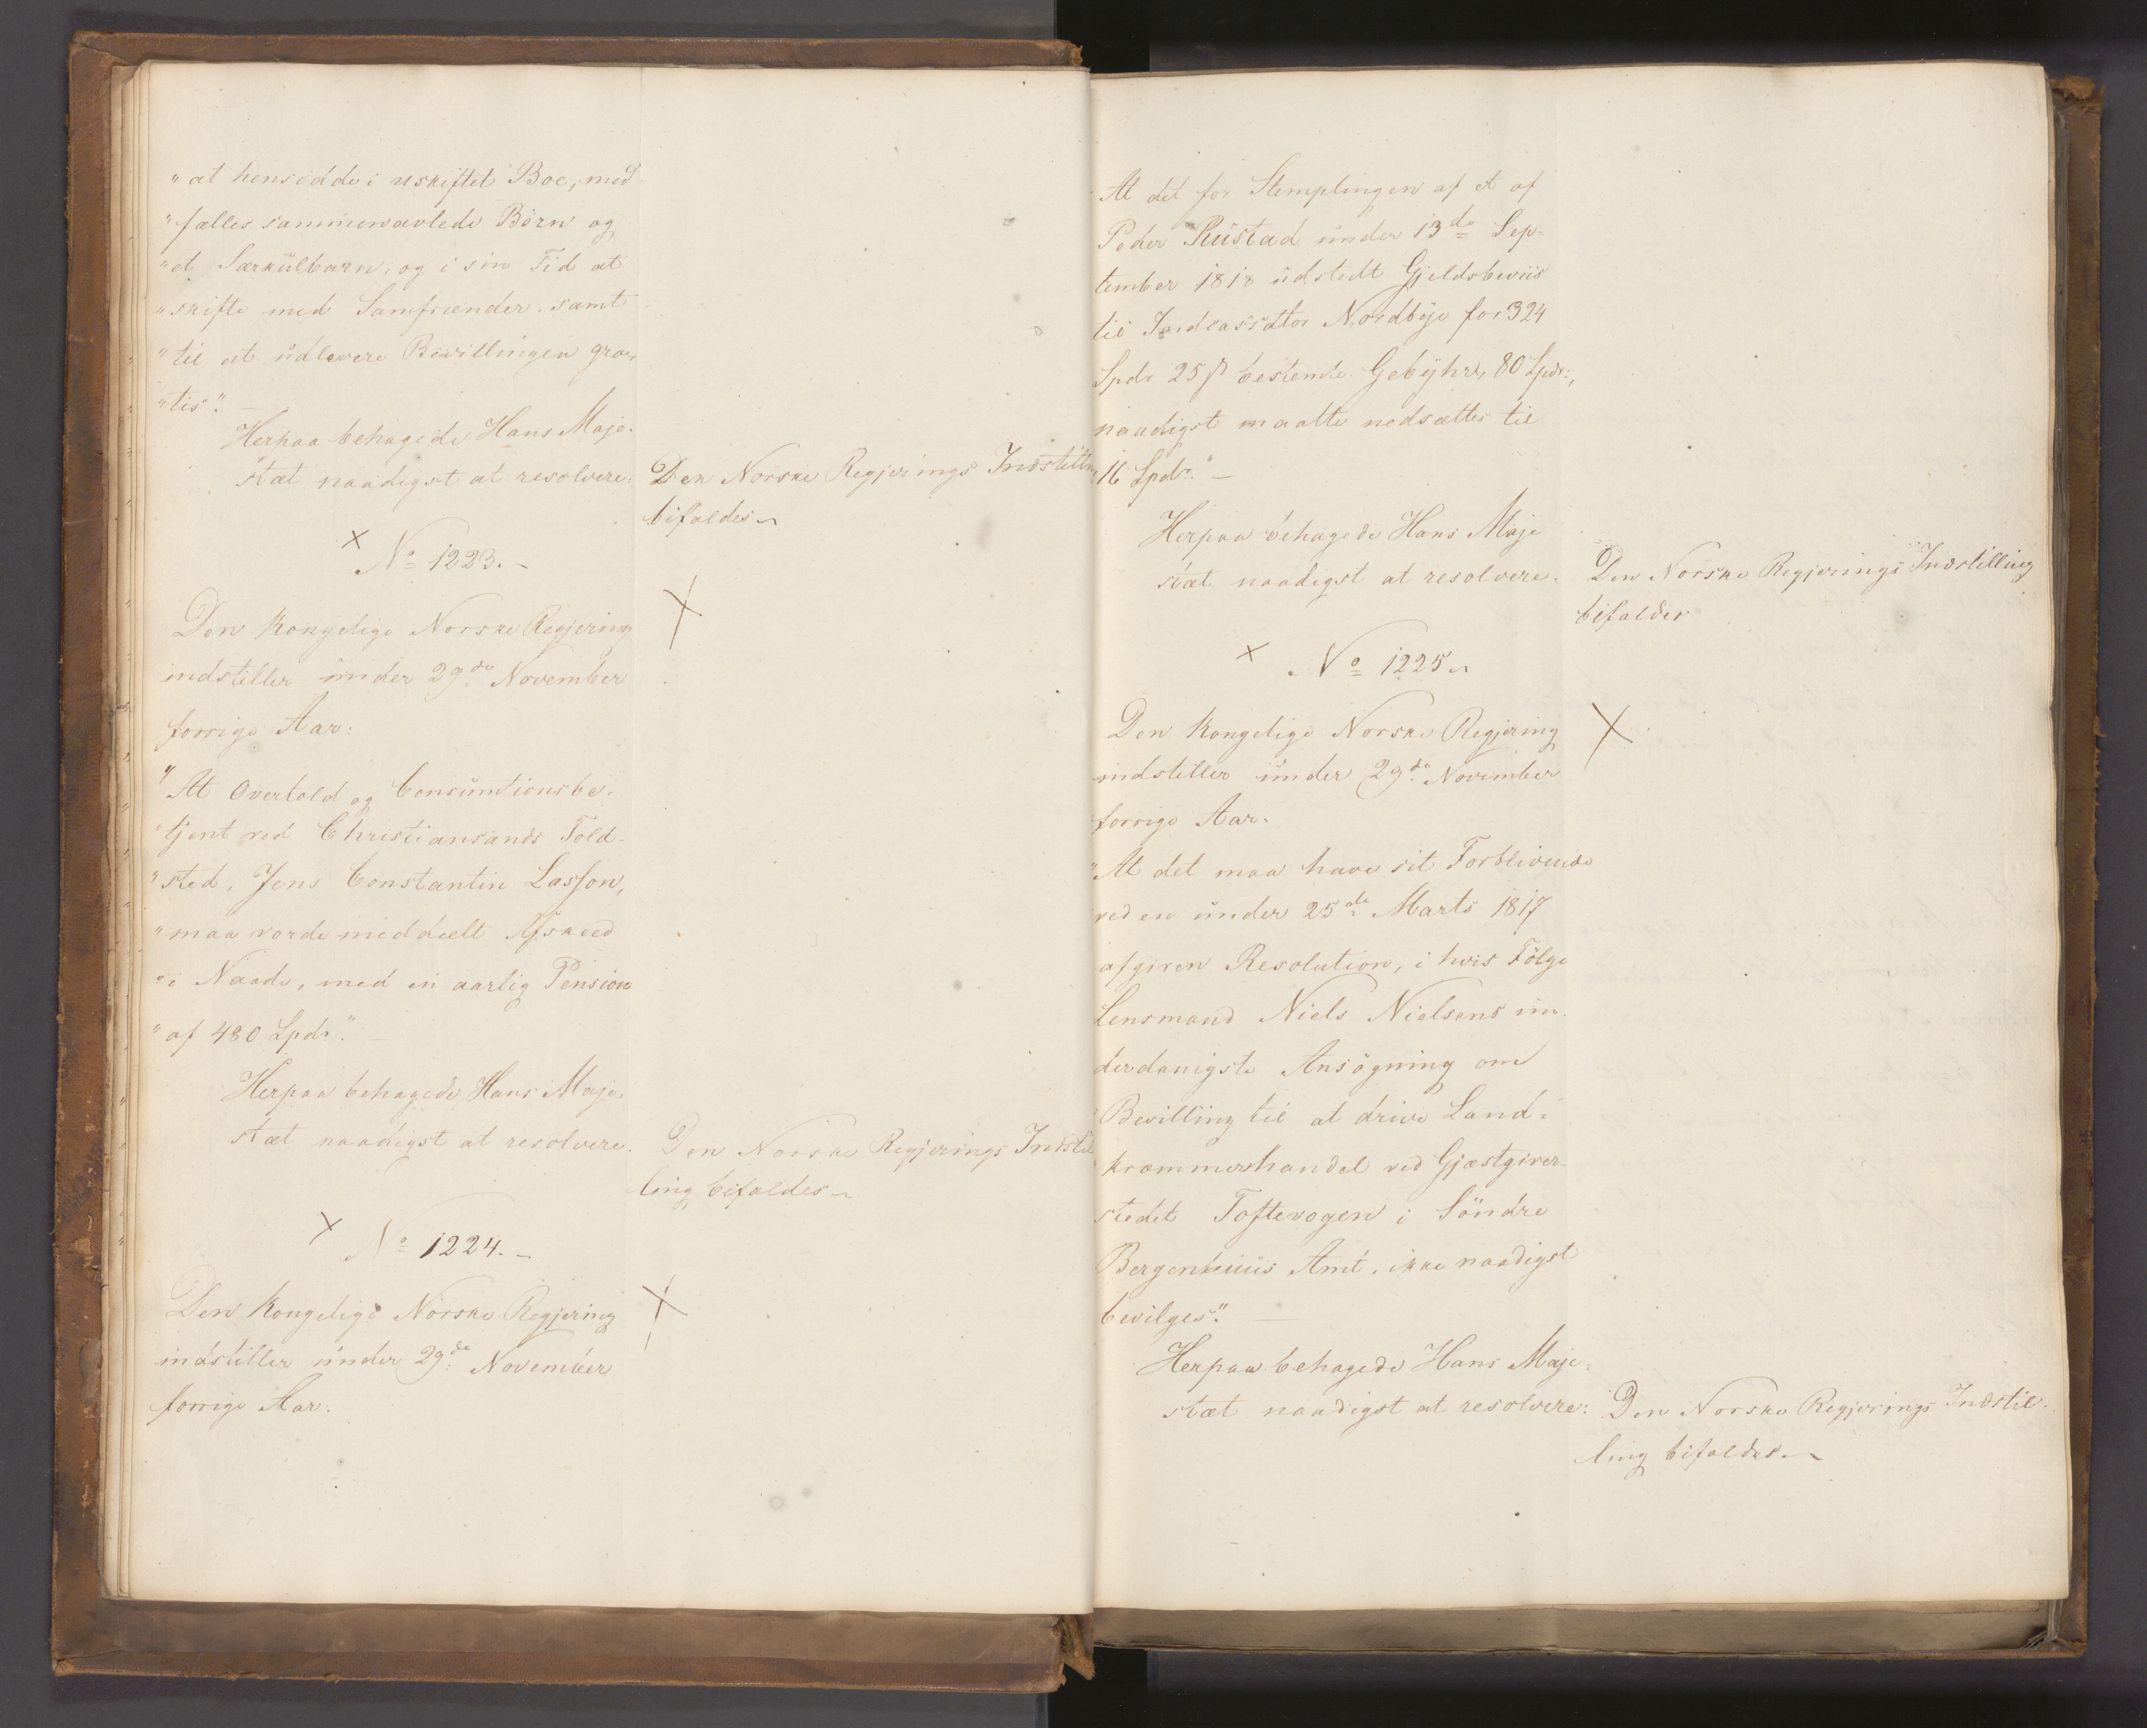 "at hensidde i uskiftet Boe, med
"fælles sammenavlede Börn og
"et Særkülbarn, og i sin Tid at
"skifte med Samfrænder, samt
"til at üdlevere Bevillingen gra-
"tis". —
Herpaa behagede Hans Maje-
stæt naadigst at resolvere:
Den Norske Regjerings Indstilln
bifaldes
× No 1223. –
Den Kongelige Norske Regjering
indstiller ünder 29de November
forrige Aar:
"At Overtold og Consümtionsbe-
"tjent ved Christiansands Told-
"sted, Jens Constantin Lasson,
"maa vorde meddeelt Afskeed
"i Naade, med en aarlig Pension
"af 480 Spdr". —
Herpaa behagede Hans Maje-
stæt naadigst at resolvere.
Den Norske Regjerings Indstil
ling bifaldes
× No 1224. –
Den Kongelige Norske Regjering
indstiller ünder 29de November
forrige Aar:
At det for Stemplingen af et af
Peder Rüstad ünder 13de Sep-
tember 1818 üdstedt Gjeldsbeviis
til Nordbye for 324
Spdr 25 ß bestemte Gebyhr, 80 Spdr:,
naadigst maatte nedsættes til
16 Spdr." —
Herpaa behagede Hans Maje
stæt naadigst at resolvere.
Den Norske Regjerings Indstilling
bifaldes
× No 1225
Den Kongelige Norske Regjering
indstiller ünder 29de November
forrige Aar.
"At det maa have sit Forblivende
ved en ünder 25de Marts 1817
afgiven Resolution, i hvis Fölge
Lensmand Niels Nielsens ün-
derdanigste Ansögning om
Bevilling til at drive Land-
kræmmerhandel ved Gjæstgiver-
stedet Toftevogen i Söndre
Bergenhüüs Amt, ikke naadigst
bevilges". —
Herpaa behagede Hans Maje-
stæt naadigst at resolvere:
Den Norske Regjerings Indstil-
ling bifaldes